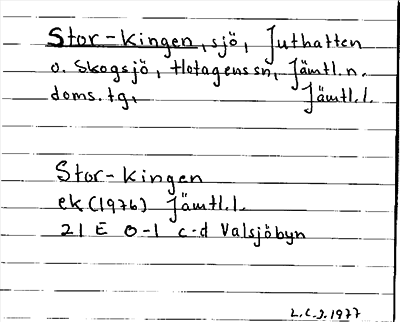 Stor-Kingen, sjö, Juthatten
o. Skogsjö, Hotagens sn, Jämtl. n.
doms. tg. Jämtl. l.
Stor-Kingen
ek (1976) Jämtl. l.
21 E 0-1 c-d Valsjöbyn
L.C.J. 1977